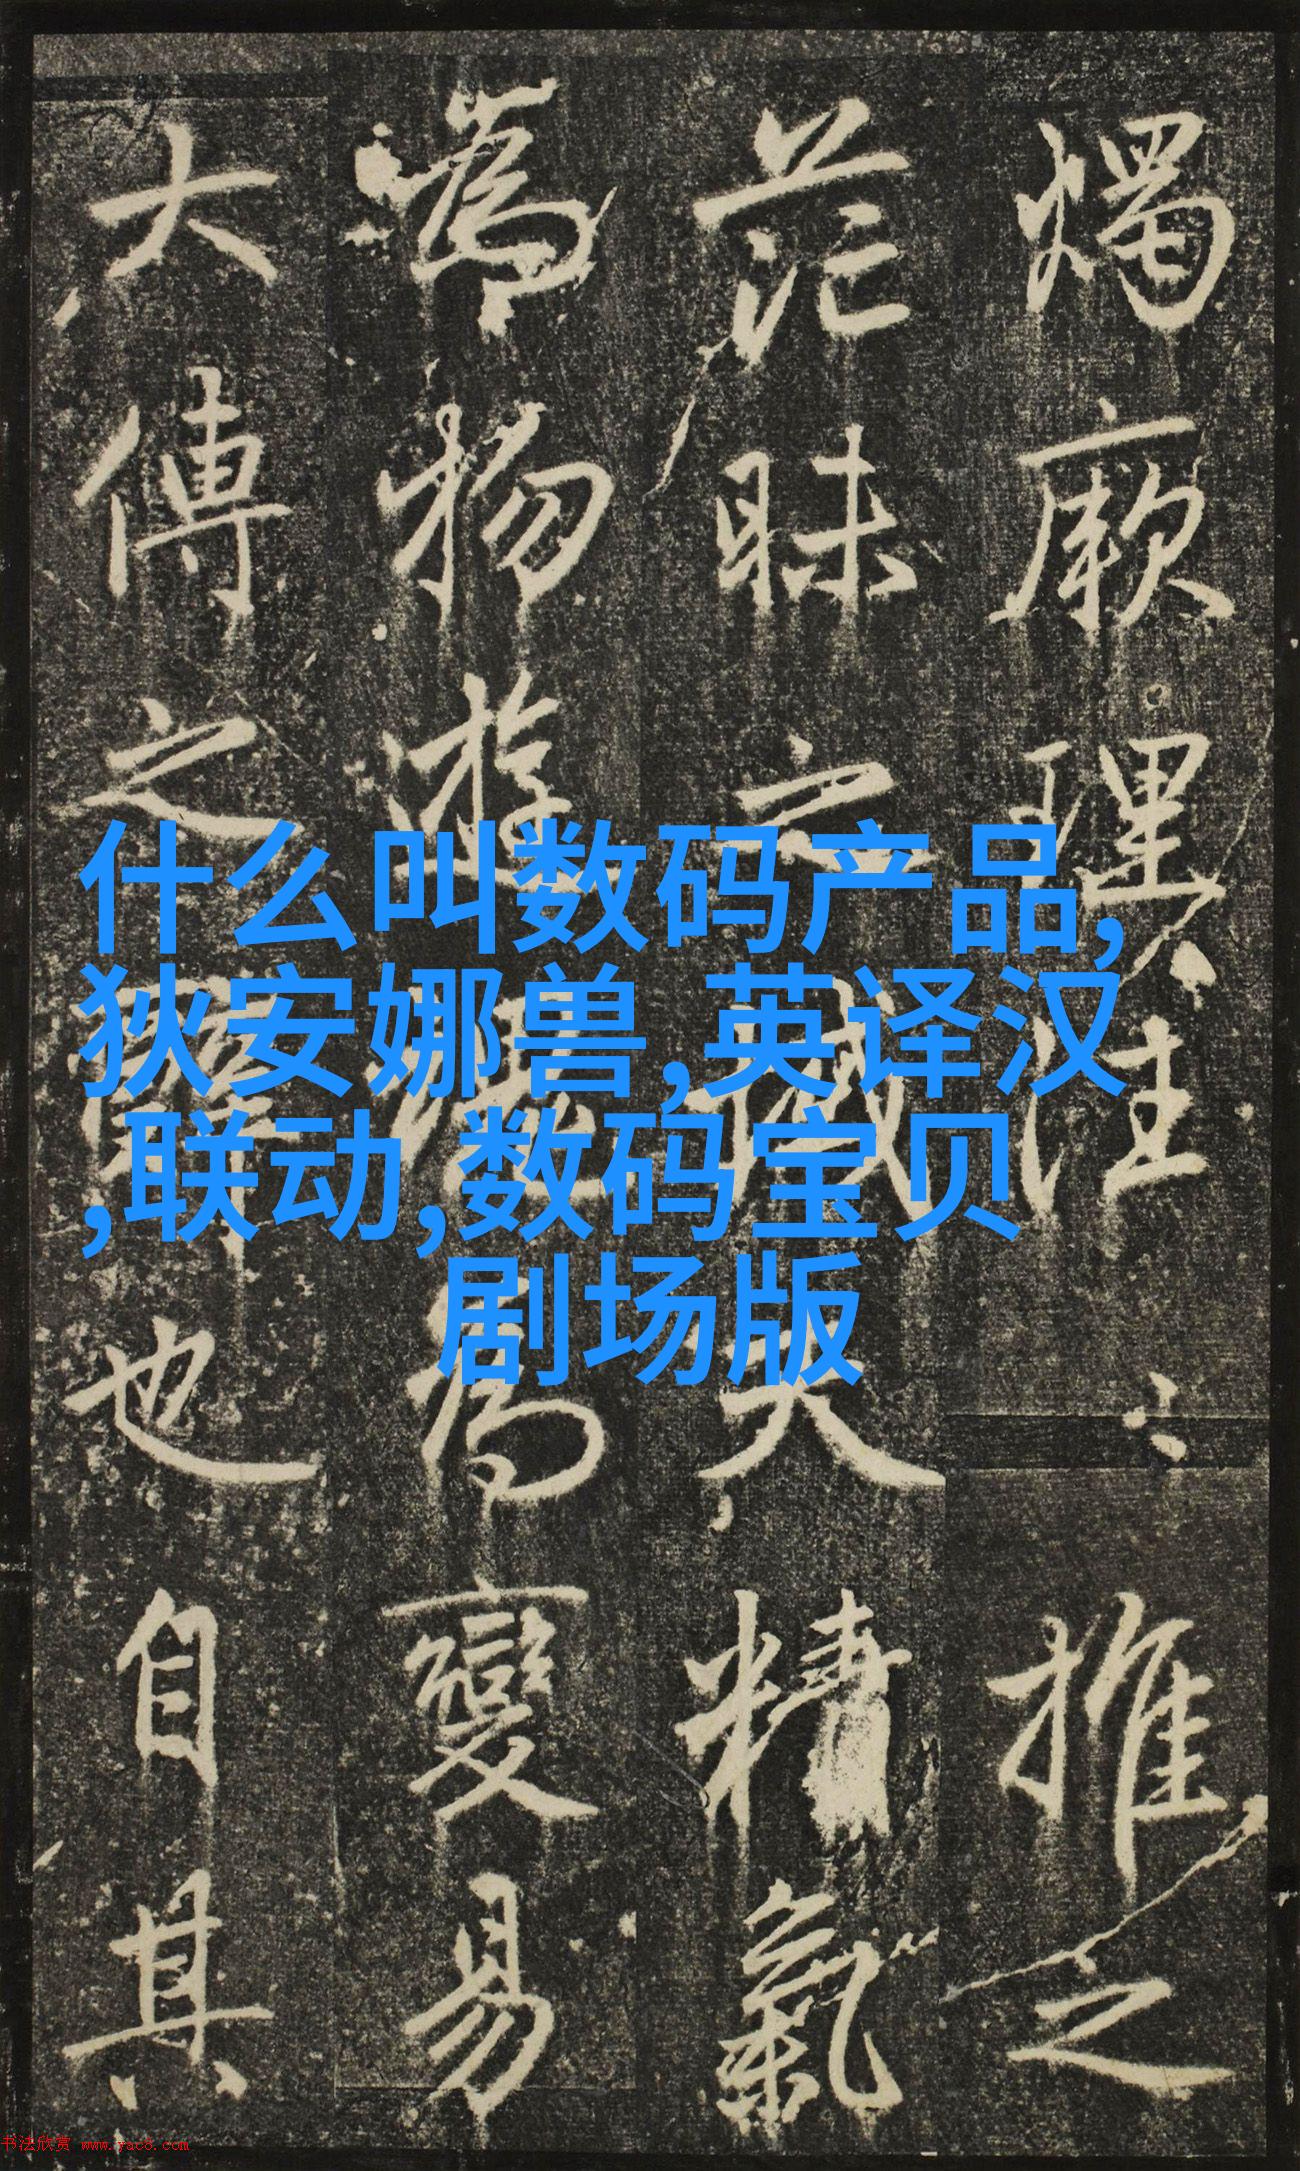 燭厥理往〻推之
茫昧之域夫精氣
為物遊魂為變易
大傳之辭也自其
什么叫数码产品,
狄安娜兽,英译汉
,联动,数码宝贝
剧场版
书法欣赏 www.yac8.com